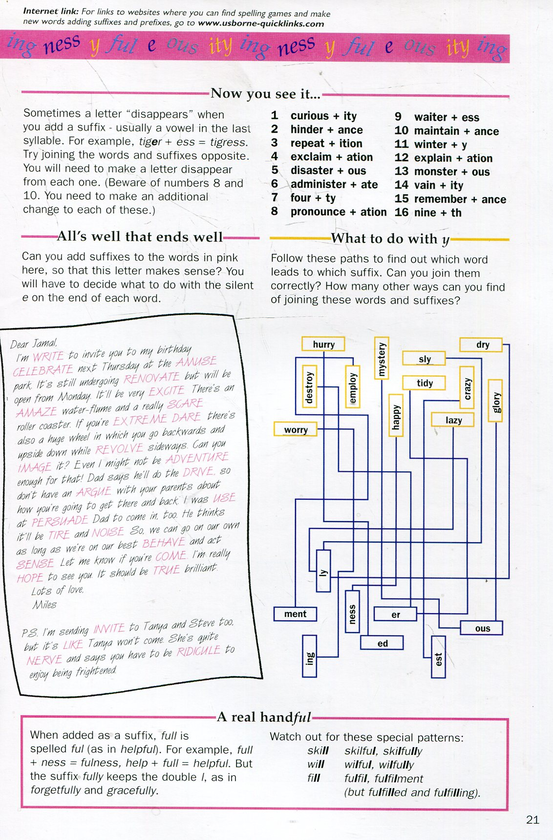 Internet link: For links to websites where you can find spelling games and make
new words adding suffixes and prefixes, go to www.usborne-quicklinks.com
ing ness y ful e ous ity ing ness y ful e ous ity ing
Now you see it...
Sometimes a letter “disappears” when
you add a suffix - usually a vowel in the last
syllable. For example, tiger + ess = tigress.
Try joining the words and suffixes opposite.
You will need to make a letter disappear
from each one. (Beware of numbers 8 and
10. You need to make an additional
change to each of these.)
1 curious + ity
2 hinder + ance
3 repeat + ition
4 exclaim + ation
5 disaster + ous
6 administer + ate
7 four + ty
8 pronounce + ation
9 waiter + ess
10 maintain + ance
11 winter + y
12 explain + ation
13 monster + ous
14 vain + ity
15 remember + ance
16 nine + th
All's well that ends well
Can you add suffixes to the words in pink
here, so that this letter makes sense? You
will have to decide what to do with the silent
e on the end of each word.
Dear Jamal,
I'm WRITE to invite you to my birthday
CELEBRATE next Thursday at the AMUSE
park. It's still undergoing RENOVATE but will be
open from Monday. It'll be very EXCITE. There's an
AMAZE water-flume and a really SCARE
roller coaster. If you're EXTREME DARE there's
also a huge wheel in which you go backwards and
upside down while REVOLVE sideways. Can you
IMAGE it? Even I might not be ADVENTURE
enough for that! Dad says he'll do the DRIVE, so
don't have an ARGUE with your parents about
how you're going to get there and back. I was USE
at PERSUADE Dad to come in, too. He thinks
it'll be TIRE and NOISE. So, we can go on our own
as long as we're on our best BEHAVE and act
SENSE. Let me know if you're COME. I'm really
HOPE to see you. It should be TRUE brilliant.
Lots of love,
Miles
P.S. I'm sending INVITE to Tanya and Steve too,
but it's LIKE Tanya won't come. She's quite
NERVE and says you have to be RIDICULE to
enjoy being frightened.
What to do with y
Follow these paths to find out which word
leads to which suffix. Can you join them
correctly? How many other ways can you find
of joining these words and suffixes?
hurry
mystery
dry
sly
destroy
employ
tidy
crazy
glory
happy
lazy
worry
ly
ment
ness
er
ous
ing
ed
est
A real handful
When added as a suffix, full is
spelled ful (as in helpful). For example, full
+ ness = fulness, help + full = helpful. But
the suffix fully keeps the double l, as in
forgetfully and gracefully.
Watch out for these special patterns:
skill skilful, skilfully
will wilful, wilfully
fill fulfil, fulfilment
(but fulfilled and fulfilling).
21